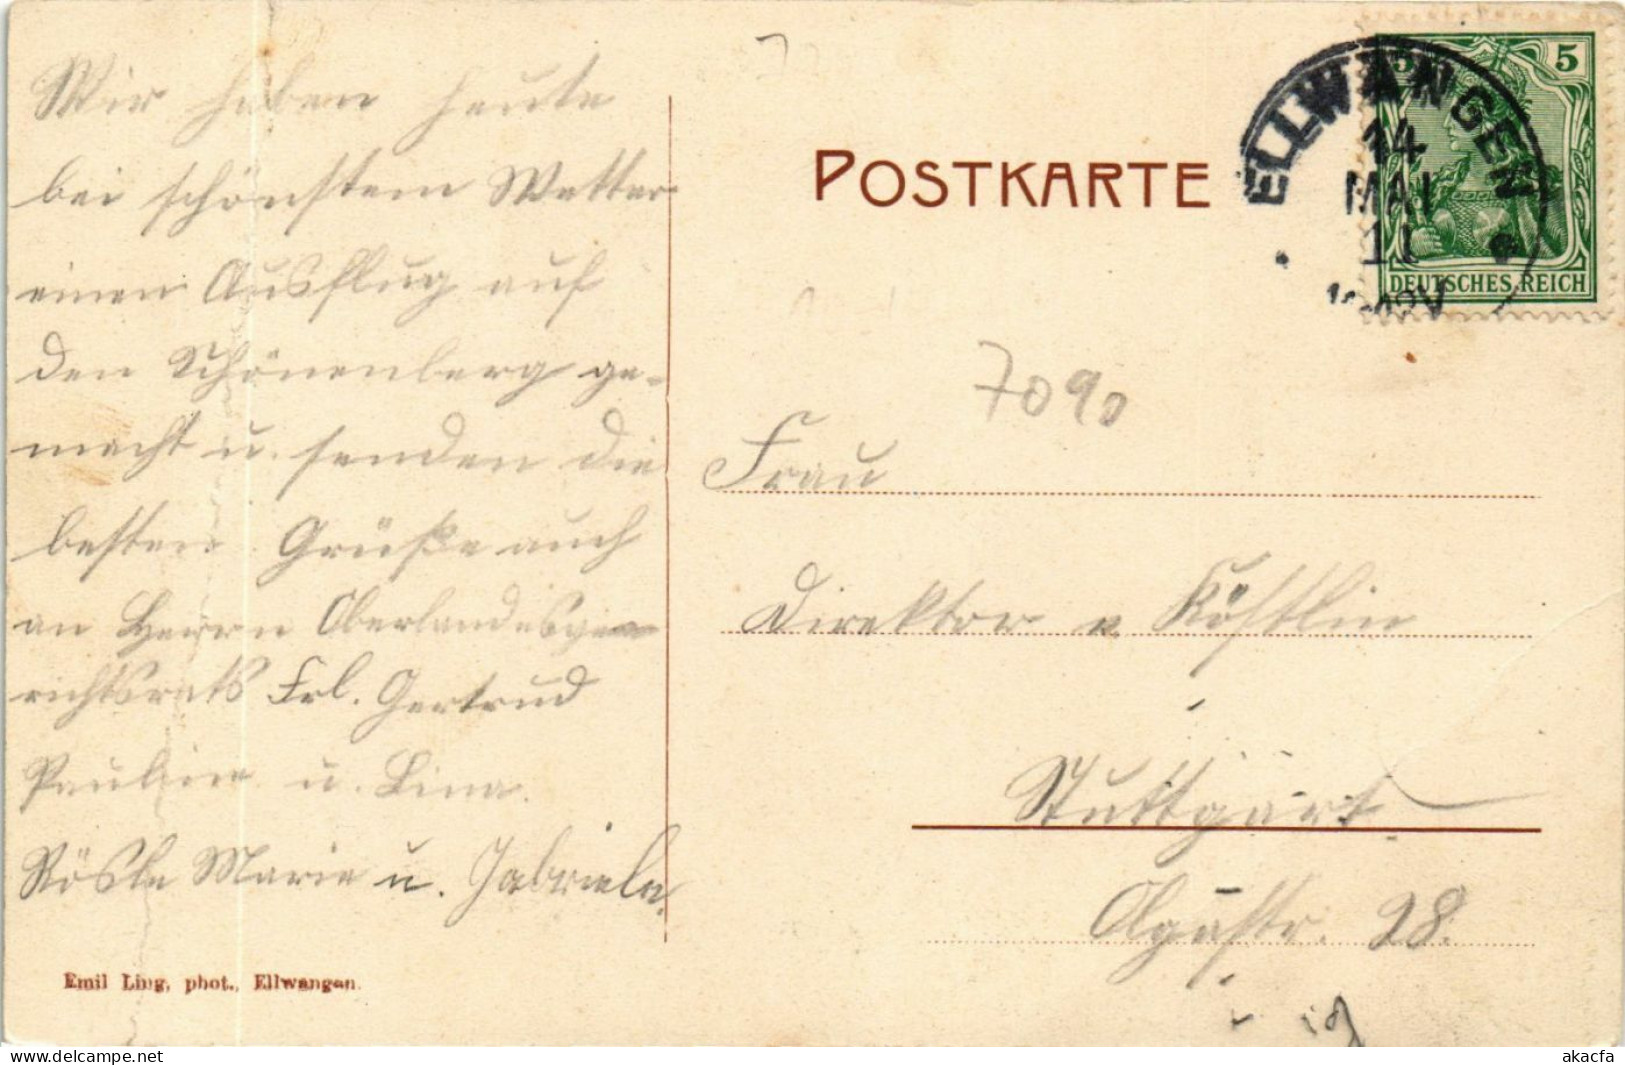 Wir haben heute
bei schönstem Wetter
einen Ausflug auf
den Schönenberg ge-
macht u. senden die
besten Grüße auch
an Herrn Oberlandesge-
richtsrats Frl. Gertrud
Pauline u. Lina.
Rösle Marie u. Gabriele.
Emil Ling, phot., Ellwangen.
POSTKARTE
5 5
DEUTSCHES REICH
ELLWANGEN
14
MAI
11
7090
Frau
Direktor v. Köstlin
Stuttgart
Olgastr. 28.
akpool
akacfa